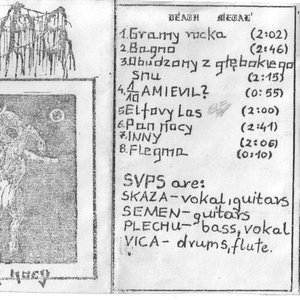 DEATH METAL
1.Gramy rocka (2:02)
2.Bagno (2:46)
3.Obudzony z głębokiego
snu (2:15)
4.1/10 AMIEVIL? (0:55)
5.Elfovy Las (2:00)
6.Pan Nocy (2:41)
7.INNY (2:06)
8.Flegma (0:10)
SVPS are:
SKAZA-vokal,guitars
SEMEN-guitars
PLECHU-bass,vokal
VICA-drums,flute.
Nocy